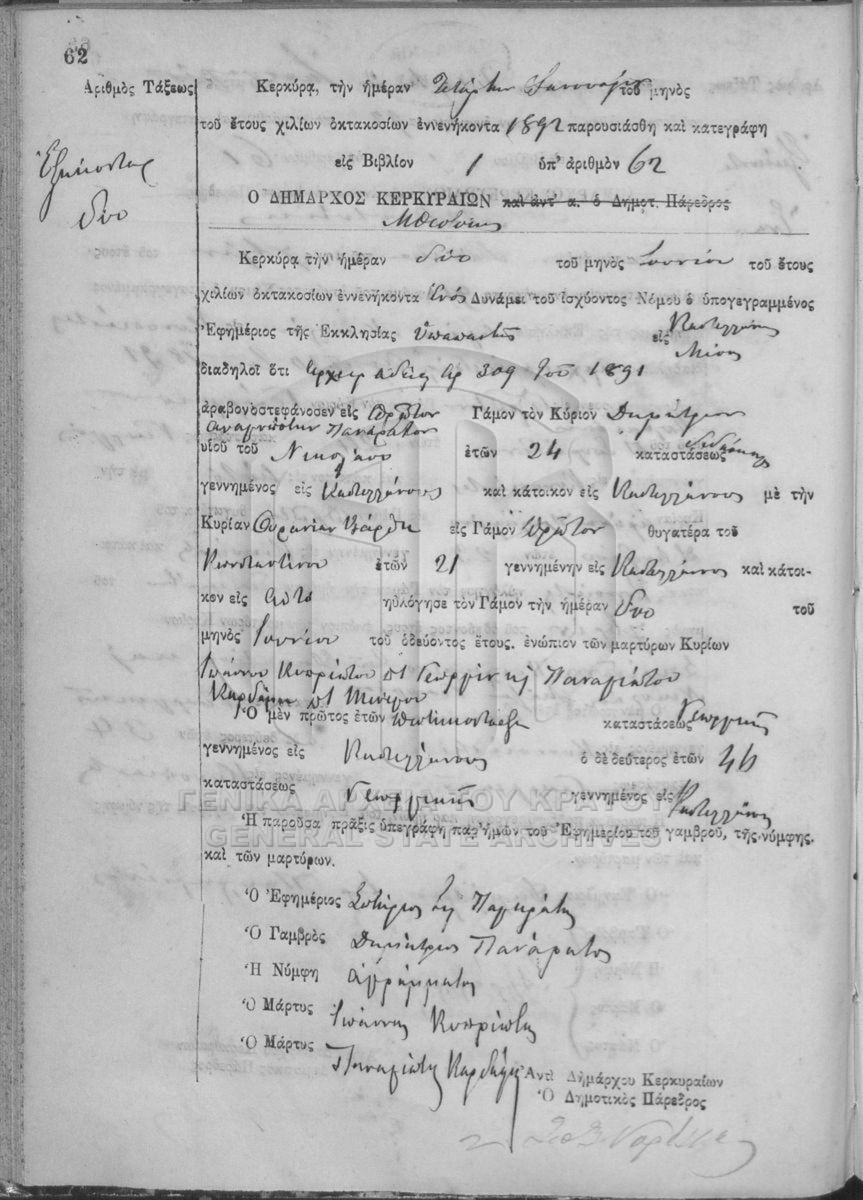 62
Ἀριθμὸς Τάξεως
Ἑξήκοντα
δύο
Κερκύρα, τὴν ἡμέραν Τετάρτην Ἰαννουαρ τοῦ μηνὸς
τοῦ ἔτους χιλίων ὀκτακοσίων ἐννενήκοντα 1892 παρουσιάσθη καὶ κατεγράφη
εἰς Βιβλίον 1 ὑπ' ἀριθμὸν 62
Ὁ ΔΗΜΑΡΧΟΣ ΚΕΡΚΥΡΑΙΩΝ καὶ ἀντ' α. ὁ Δημοτ. Πάρεδρος
Κερκύρᾳ τὴν ἡμέραν δύο τοῦ μηνὸς Ἰουνίου τοῦ ἔτους
χιλίων ὀκτακοσίων ἐννενήκοντα ἑνός Δυνάμει τοῦ ἰσχύοντος Νόμου ὁ ὑπογεγραμμένος
Ἐφημέριος τῆς Ἐκκλησίας Ὑπαπαντῆς εἰς Καστελλάνους
Μέσης
διαδηλοῖ ὅτι ἀρ 309 τοῦ 1891
ἀραβονοστεφάνοσεν εἰς πρῶτον Γάμον τὸν Κύριον Δημήτριον
ἀναγνώστην Πανάρατον
υἱοῦ τοῦ Νικολάου ἐτῶν 24 καταστάσεως
γεννημένος εἰς Καστελλάνους καὶ κάτοικον εἰς Καστελλάνους μὲ τὴν
Κυρίαν Οὐρανίαν Βάρθη εἰς Γάμον πρῶτον θυγατέρα τοῦ
Κωνσταντίνου ἐτῶν 21 γεννημένην εἰς Καστελλάνους καὶ κάτοι-
κον εἰς αὐτό ηὐλόγησε τὸν Γάμον τὴν ἡμέραν δύο τοῦ
μηνὸς Ἰουνίου τοῦ ὁδεύοντος ἔτους. ἐνώπιον τῶν μαρτύρων Κυρίων
Ἰωάννου Κυπριώτου Γεωργίου καὶ Παναγιώτου
Καρδάμη
Ὁ μὲν πρῶτος ἐτῶν καταστάσεως Γεωργικῆς
γεννημένος εἰς Καστελλάνους ὁ δὲ δεύτερος ἐτῶν 46
καταστάσεως Γεωργικῆς γεννημένος εἰς Καστελλάνους
Ἡ παροῦσα πρᾶξις ὑπεγράφη παρ' ἡμῶν τοῦ Ἐφημερίου τοῦ γαμβροῦ, τῆς νύμφης.
καὶ τῶν μαρτύρων.
ΓΕΝΙΚΑ ΑΡΧΕΙΑ ΤΟΥ ΚΡΑΤΟΥΣ
GENERAL STATE ARCHIVES
Ὁ Ἐφημέριος Σωτήριος Παγκράτης
Ὁ Γαμβρὸς Δημήτριος Πανάρατος
Ἡ Νύμφη ἀγράμματος
Ὁ Μάρτυς Ἰωάννης Κυπριώτης
Ὁ Μάρτυς Παναγιώτης Καρδάμης
Ἀντὶ Δημάρχου Κερκυραίων
Ὁ Δημοτικὸς Πάρεδρος